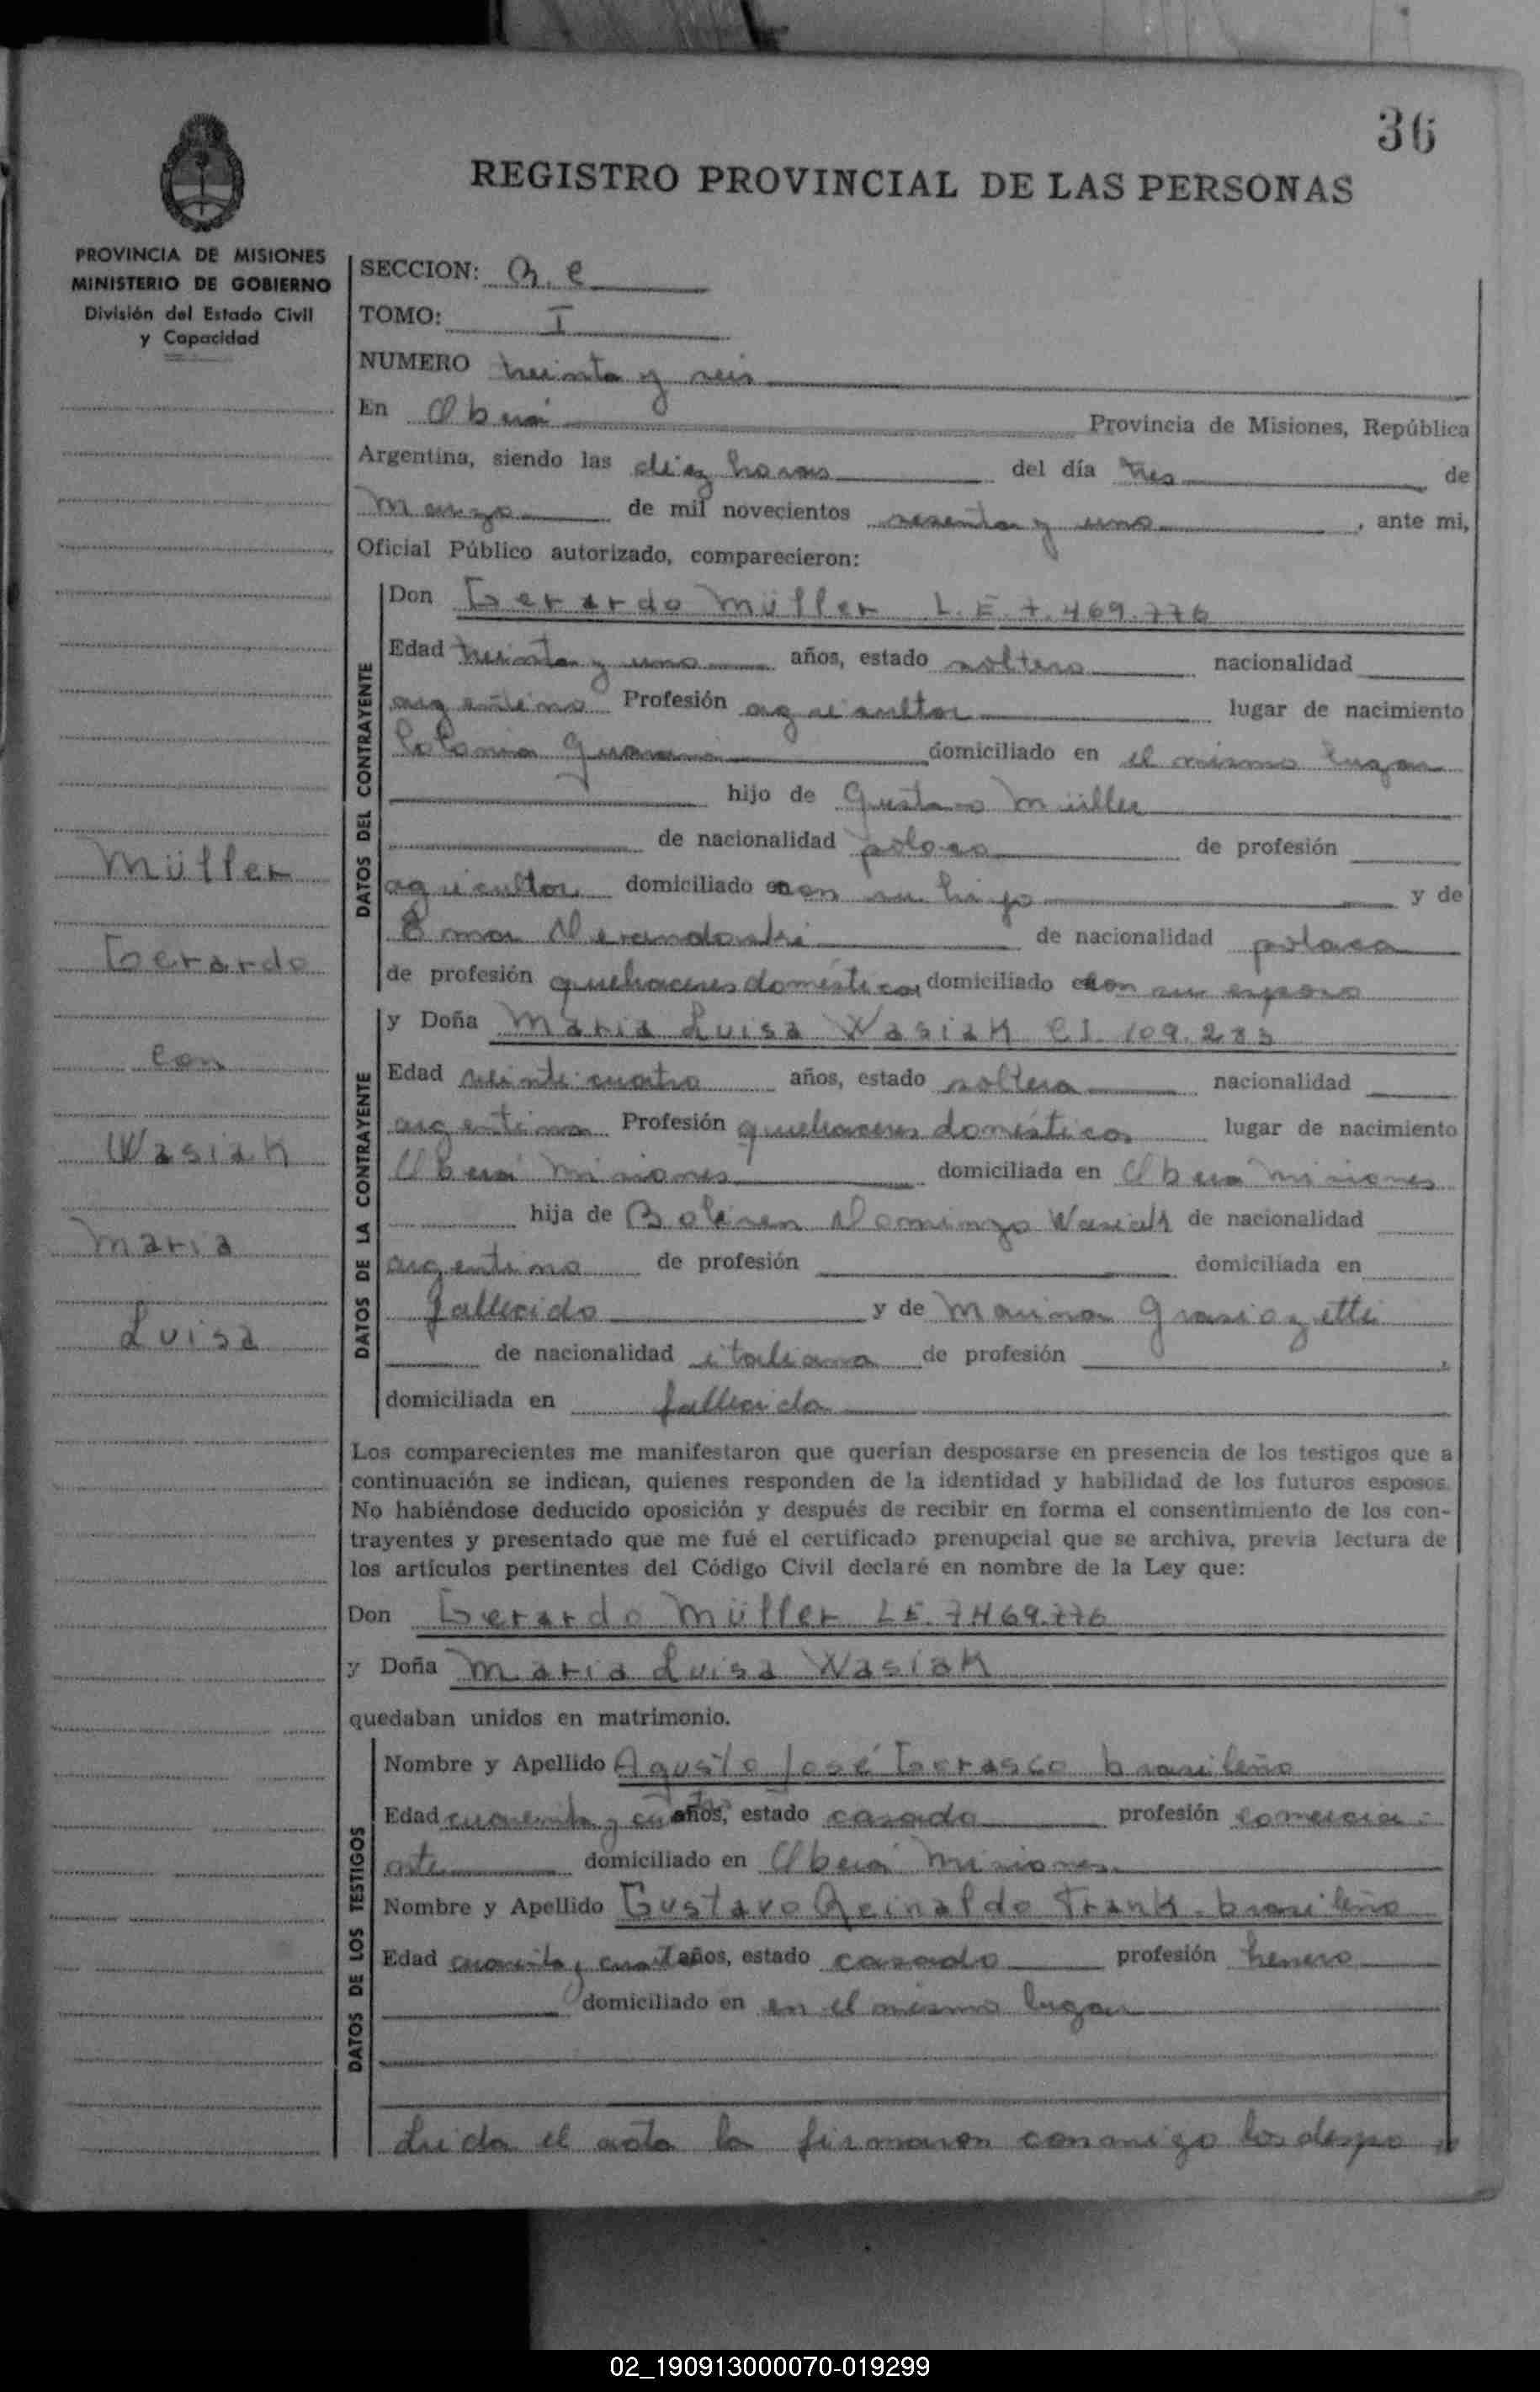 36
REGISTRO PROVINCIAL DE LAS PERSONAS
PROVINCIA DE MISIONES
MINISTERIO DE GOBIERNO
División del Estado Civil
y Capacidad
Müller
Gerardo
con
Wasiak
Maria
Luisa
SECCION:
TOMO: I
NUMERO treinta y seis
En Oberá Provincia de Misiones, República
Argentina, siendo las diez horas del día tres de
Marzo de mil novecientos sesenta y uno, ante mi,
Oficial Público autorizado, comparecieron:
DATOS DEL CONTRAYENTE
Don Gerardo Müller L.E. 7.469.776
Edad treinta y uno años, estado soltero nacionalidad
argentino Profesión agricultor lugar de nacimiento
Colonia Guarani domiciliado en el mismo lugar
hijo de Gustavo Müller
de nacionalidad polaco de profesión
agricultor domiciliado con su hijo y de
Ema de nacionalidad polaca
de profesión quehaceres domésticos domiciliado con su esposo
DATOS DE LA CONTRAYENTE
y Doña Maria Luisa Wasiak C.I. 109.283
Edad veinticuatro años, estado soltera nacionalidad
argentina Profesión quehaceres domésticos lugar de nacimiento
Oberá Misiones domiciliada en Oberá Misiones
hija de Domingo Wasiak de nacionalidad
argentino de profesión domiciliada en
fallecido y de Marina Graciozetti
de nacionalidad italiana de profesión ,
domiciliada en fallecida
Los comparecientes me manifestaron que querían desposarse en presencia de los testigos que a
continuación se indican, quienes responden de la identidad y habilidad de los futuros esposos.
No habiéndose deducido oposición y después de recibir en forma el consentimiento de los con-
trayentes y presentado que me fué el certificado prenupcial que se archiva, previa lectura de
los artículos pertinentes del Código Civil declaré en nombre de la Ley que:
Don Gerardo Müller L.E. 7.469.776
y Doña Maria Luisa Wasiak
quedaban unidos en matrimonio.
DATOS DE LOS TESTIGOS
Nombre y Apellido José brasileño
Edad cuarenta y años, estado casado profesión comerci-
ante domiciliado en Oberá Misiones
Nombre y Apellido Gustavo Reinaldo Frank - brasileño
Edad cuarenta y años, estado casado profesión herrero
domiciliado en en el mismo lugar
Leida el acta la firmaron conmigo los despo
02_190913000070-019299